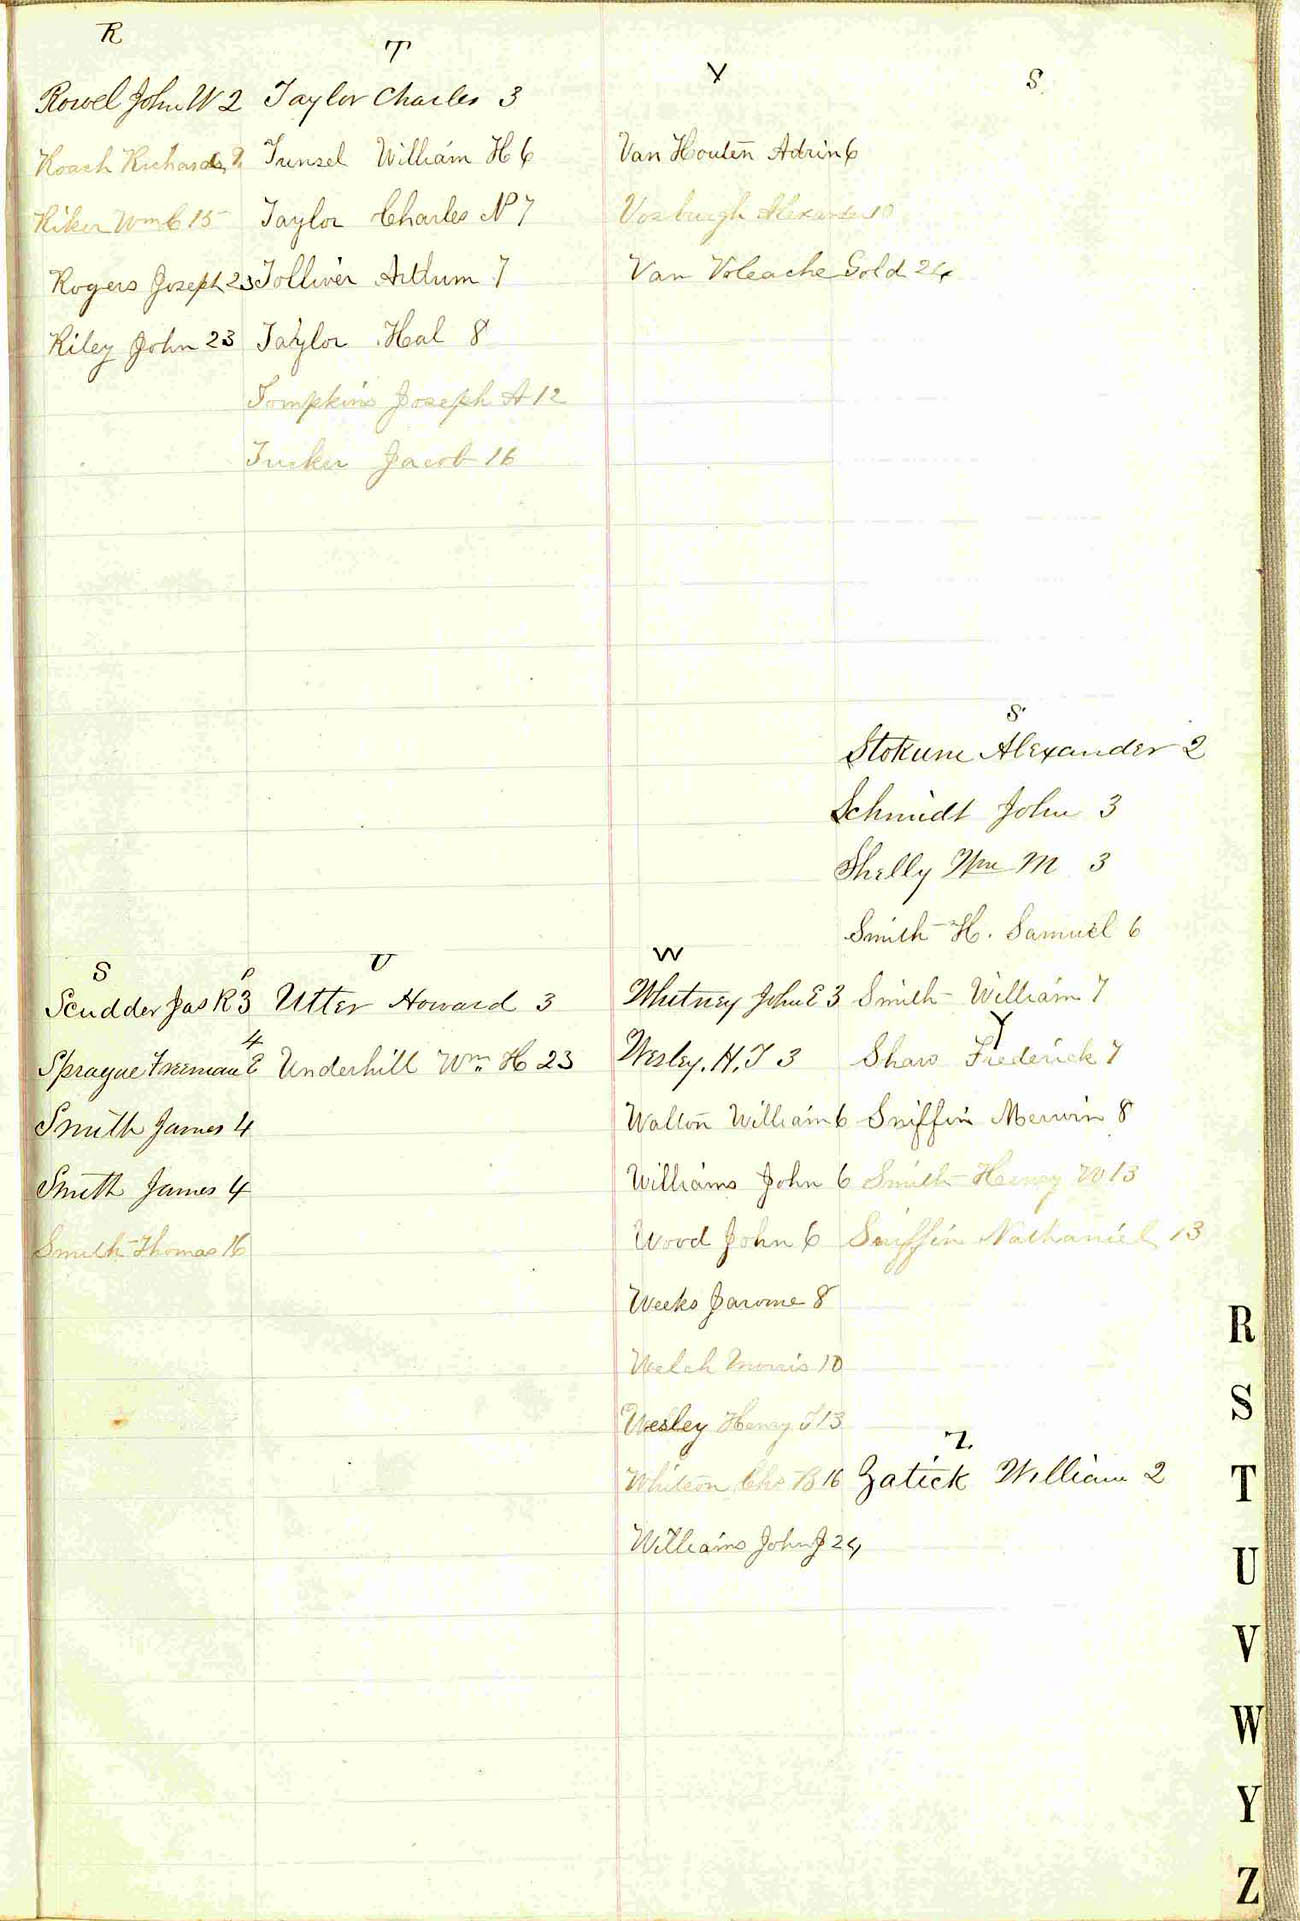 R
Rowel John W 2
Roach Richard
Riker Wm C 15
Rogers Joseph 23
Riley John 23
T
Taylor Charles 3
Tunsel William H 6
Taylor Charles N 7
Tolliver Arthum 7
Taylor Hal 8
Tompkins Joseph A 12
Tucker Jacob 16
V
Van Houten Adrin 6
Vosburgh Alexander 10
Van Voleache Gold 24
S
S
Stokum Alexander 2
Schmidt John 3
Shelly Wm M 3
Smith H. Samuel 6
Smith William 7
Shaw Frederick 7
Sniffin Merwin 8
Smith Henry W 13
Sniffin Nathaniel 13
S
Scudder Jas R 3
Sprague Freeman E 4
Smith James 4
Smith James 4
Smith Thomas 16
U
Utter Howard 3
Underhill Wm. H 23
W
Whitney John E 3
Wesley. H. T 3
Walton William 6
Williams John 6
Wood John 6
Weeks Jarome 8
Welch Morris 10
Wesley Henry T 13
Whitson Chs B 16
Williams John J 24
Y
Z
Zatick William 2
R
S
T
U
V
W
Y
Z